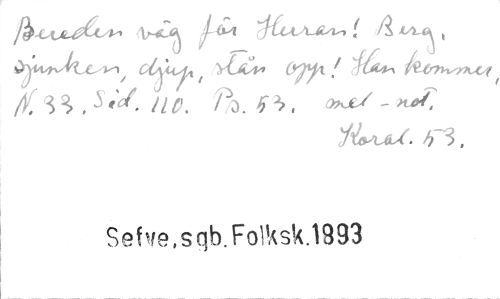 Bereden väg för Herran! Berg,
sjunken, djup, stån opp! Han kommer,
N. 33. Sid. 110. Ps. 53. mel-not.
Koral. 53.
Sefve, sgb. Folksk. 1893